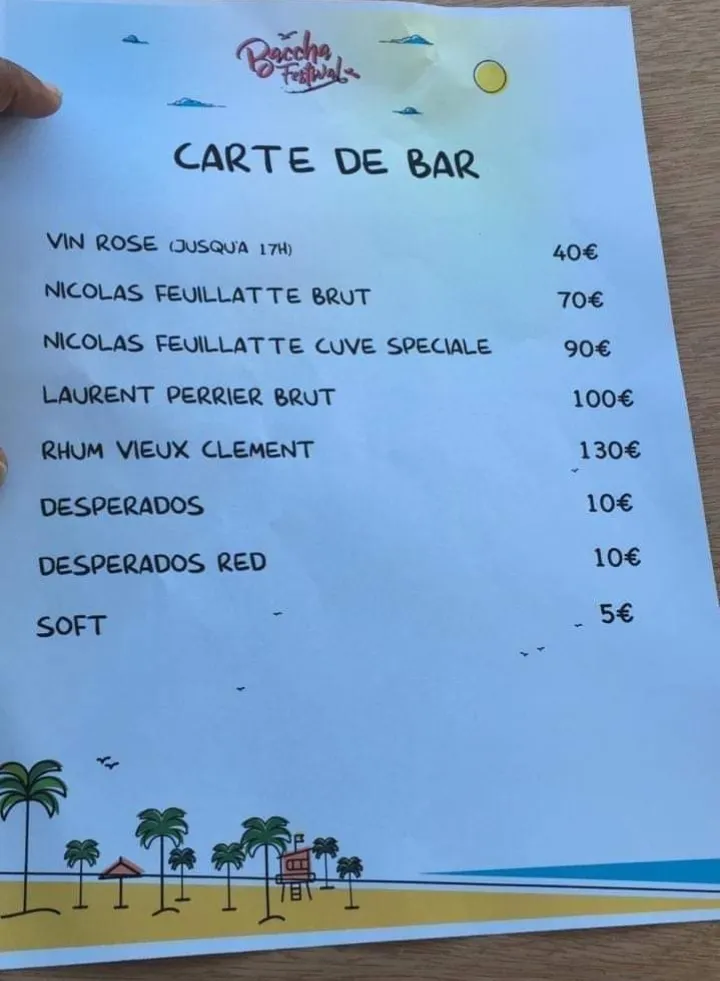 Baccha
Festival
CARTE DE BAR
VIN ROSE (JUSQU'A 17H) 40€
NICOLAS FEUILLATTE BRUT 70€
NICOLAS FEUILLATTE CUVE SPECIALE 90€
LAURENT PERRIER BRUT 100€
RHUM VIEUX CLEMENT 130€
DESPERADOS 10€
DESPERADOS RED 10€
SOFT 5€